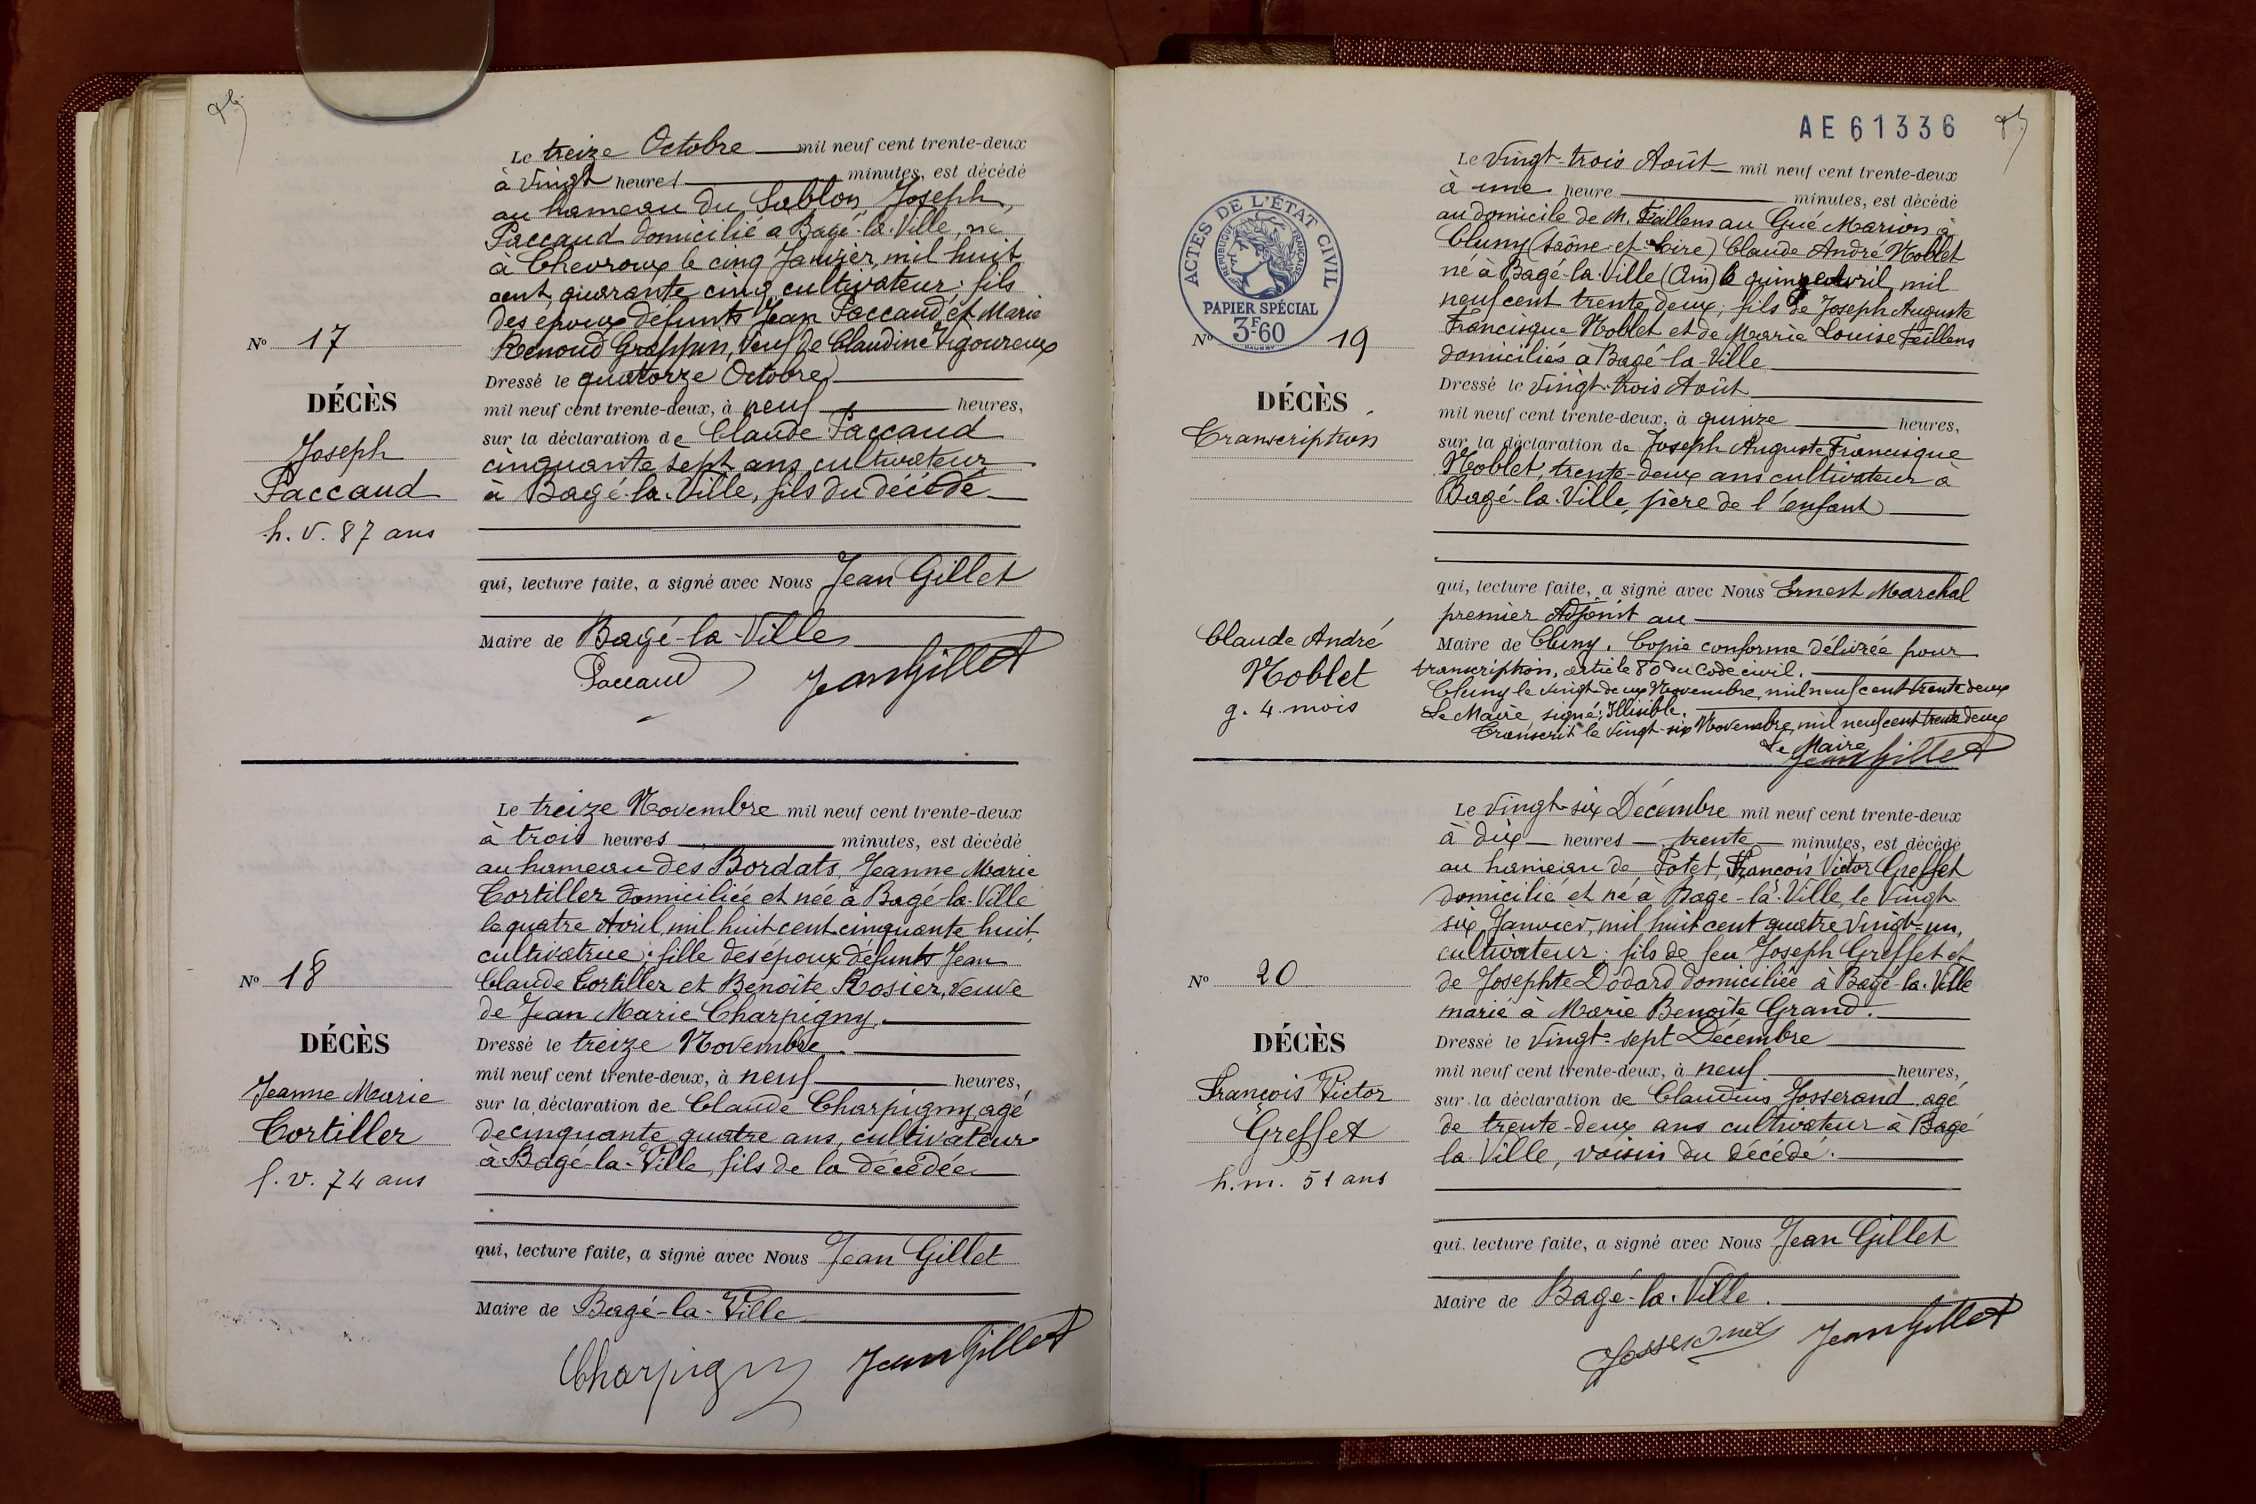 Le treize Octobre mil neuf cent trente-deux
à vingt heures minutes, est décédé
au hameau du Sablon, Joseph
Paccaud domicilié à Bagé-la-Ville, né
à Chevroux le cinq Janvier mil huit
cent quarante cinq, cultivateur; fils
des époux défunts Jean Paccaud et Marie
veuf de Claudine Vigoureux
Nº 17
DÉCÈS
Joseph
Paccaud
h. v. 87 ans
Dressé le quatorze Octobre
mil neuf cent trente-deux, à neuf heures,
sur la déclaration de Claude Paccaud
cinquante sept ans, cultivateur
à Bagé-la-Ville, fils du décédé
qui, lecture faite, a signé avec Nous Jean Gillet
Maire de Bagé-la-Ville
Paccaud Jean Gillet
Le treize Novembre mil neuf cent trente-deux
à trois heures minutes, est décédé
au hameau des Bordats, Jeanne Marie
Cortiller domiciliée et née à Bagé-la-Ville
le quatre Avril, mil huit cent cinquante huit,
cultivatrice; fille des époux défunts Jean
Claude Cortiller et Benoîte Rosier, veuve
de Jean Marie Charpigny.
Nº 18
DÉCÈS
Jeanne Marie
Cortiller
f. v. 74 ans
Dressé le treize Novembre
mil neuf cent trente-deux, à neuf heures,
sur la déclaration de Claude Charpigny, agé
de cinquante quatre ans, cultivateur
à Bagé-la-Ville, fils de la décédée
qui, lecture faite, a signé avec Nous Jean Gillet
Maire de Bagé-la-Ville
Charpigny Jean Gillet
AE 61336
ACTES DE L'ÉTAT CIVIL
RÉPUBLIQUE FRANÇAISE
PAPIER SPÉCIAL
3F60
Le vingt-trois Août mil neuf cent trente-deux
à une heure minutes, est décédé
au domicile de M. Feillens au Gué Marion à
Cluny (Saône-et-Loire) Claude André Noblet
né à Bagé-la-Ville (Ain) le quinze Avril mil
neuf cent trente deux; fils de Joseph Auguste
Francisque Noblet et de Marie Louise Feillens
domiciliés à Bagé-la-Ville
Nº 19
DÉCÈS
Transcription
Claude André
Noblet
g. 4 mois
Dressé le vingt-trois Août
mil neuf cent trente-deux, à quinze heures,
sur la déclaration de Joseph Auguste Francisque
Noblet, trente-deux ans cultivateur à
Bagé-la-Ville, père de l'enfant
qui, lecture faite, a signé avec Nous Ernest Marchal
premier Adjoint au
Maire de Cluny. Copie conforme délivrée pour
transcription, article 80 du Code civil.
Cluny le vingt-deux Novembre, mil neuf cent trente deux
Le Maire, signé: Illisible.
Transcrit le vingt-six Novembre mil neuf cent trente deux
Le Maire
Jean Gillet
Le vingt-six Décembre mil neuf cent trente-deux
à dix heures trente minutes, est décédé
au hameau de Potet, François Victor Greffet
domicilié et né à Bagé-la-Ville, le vingt
six Janvier, mil huit cent quatre vingt-un,
cultivateur; fils de feu Joseph Greffet et
de Josephte Dodard domiciliée à Bagé-la-Ville
marié à Marie Benoîte Grand.
Nº 20
DÉCÈS
François Victor
Greffet
h. m. 51 ans
Dressé le vingt-sept Décembre
mil neuf cent trente-deux, à neuf heures,
sur la déclaration de Claudius Josserand agé
de trente-deux ans cultivateur à Bagé
la-Ville, voisin du décédé.
qui, lecture faite, a signé avec Nous Jean Gillet
Maire de Bagé-la-Ville.
Josserand Jean Gillet